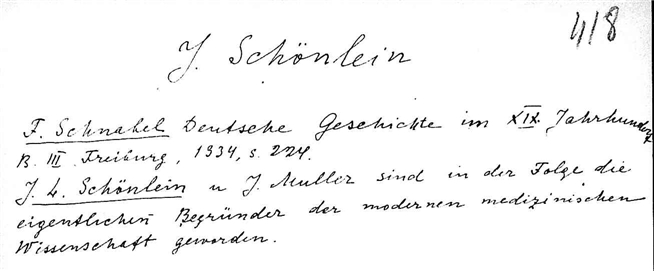 418
J. Schönlein
F. Schnabel Deutsche Geschichte im XIX Jahrhundert
B. III Freiburg, 1934, s. 224.
J. L. Schönlein u J. Muller sind in der Folge die
eigentlichen Begründer der modernen medizinischen
Wissenschaft geworden.